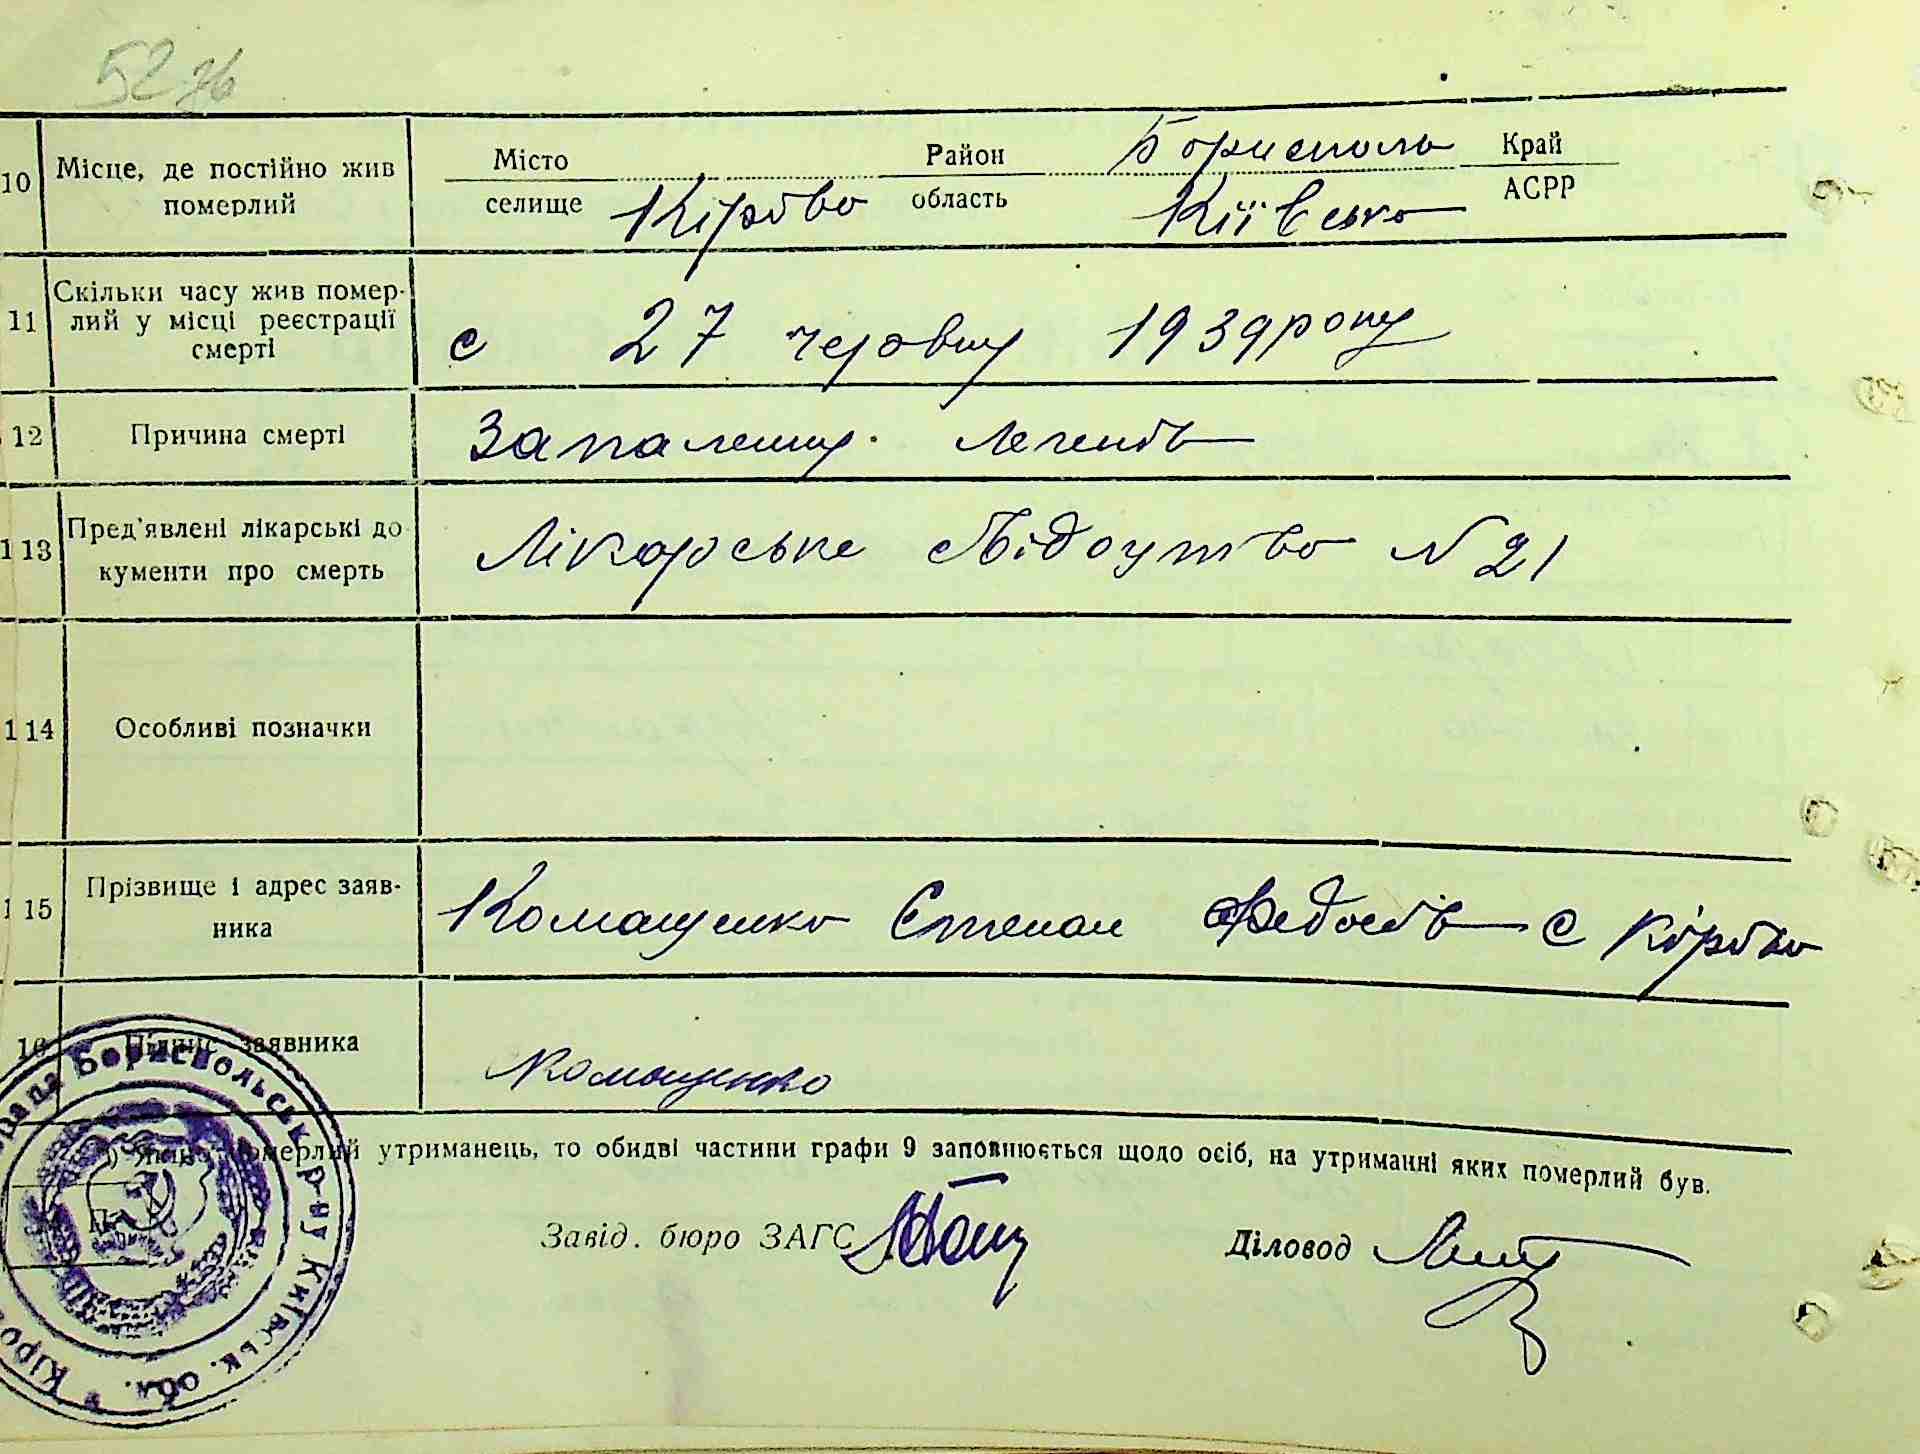 52 зв
10 Місце, де постійно жив померлий
Місто Район Бориспольс Край
селище Кірово область Київська АСРР
11 Скільки часу жив помер-
лий у місці реєстрації
смерті
с 27 червня 1939 року
12 Причина смерті Запалення легенів
113 Пред'явлені лікарські до
кументи про смерть
Лікарське свідоцтво N 21
114 Особливі позначки
115 Прізвище і адрес заяв-
ника
Комащенко Степан Федосів с Кірово
16 Підпис заявника Комащенко
) Якщо померлий утриманець, то обидві частини графи 9 заповнюється щодо осіб, на утриманні яких померлий був.
Завід. бюро ЗАГС Діловод
рада Бориспольськ. р-ну Київськ. обл. * Кіров